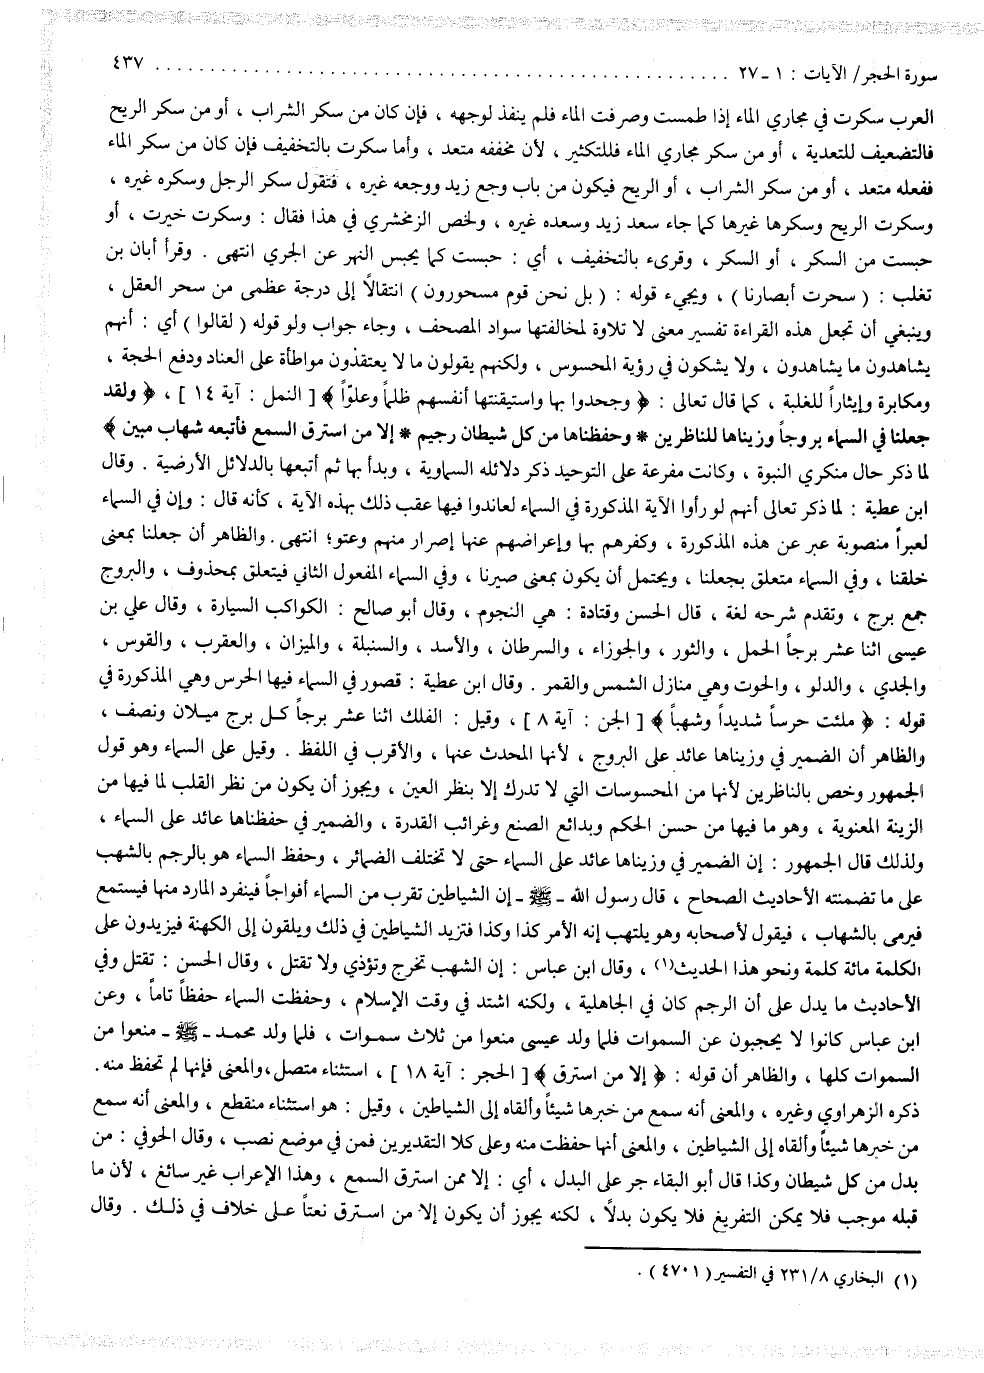 سورة الحجر/ الآيات : ١ -٢٧ ................................................ ٤٣٧
العرب سكرت في مجاري الماء إذا طمست وصرفت الماء فلم ينفذ لوجهه ، فإن كان من سكر الشراب ، أو من سكر الريح
فالتضعيف للتعدية ، أو من سكر مجاري الماء فللتكثير ، لأن مخففه متعد ، وأما سكرت بالتخفيف فإن كان من سكر الماء
ففعله متعد ، أو من سكر الشراب ، أو الريح فيكون من باب وجع زيد ووجعه غيره ، فتقول سكر الرجل وسكره غيره ،
وسكرت الريح وسكرها غيرها كما جاء سعد زيد وسعده غيره ، ولخص الزمخشري في هذا فقال : وسكرت خيرت ، أو
حبست من السكر ، أو السكر ، وقرىء بالتخفيف ، أي : حبست كما يحبس النهر عن الجري انتهى . وقرأ أبان بن
تغلب : ( سحرت أبصارنا ) ، ويجيء قوله : ( بل نحن قوم مسحورون ) انتقالاً إلى درجة عظمى من سحر العقل ،
وينبغي أن تجعل هذه القراءة تفسير معنى لا تلاوة لمخالفتها سواد المصحف ، وجاء جواب ولو قوله ( لقالوا ) أي : أنهم
يشاهدون ما يشاهدون ، ولا يشكون في رؤية المحسوس ، ولكنهم يقولون ما لا يعتقدون مواطأة على العناد ودفع الحجة ،
ومكابرة وإيثاراً للغلبة ، كما قال تعالى : ﴿ وجحدوا بها واستيقنتها أنفسهم ظلماً وعلوّاً ﴾ [ النمل : آية ١٤ ] ، ﴿ ولقد
جعلنا في السماء بروجاً وزيناها للناظرين * وحفظناها من كل شيطان رجيم * إلا من استرق السمع فأتبعه شهاب مبين ﴾
لما ذكر حال منكري النبوة ، وكانت مفرعة على التوحيد ذكر دلائله السماوية ، وبدأ بها ثم أتبعها بالدلائل الأرضية . وقال
ابن عطية : لما ذكر تعالى أنهم لو رأوا الآية المذكورة في السماء لعاندوا فيها عقب ذلك بهذه الآية ، كأنه قال : وإن في السماء
لعبراً منصوبة عبر عن هذه المذكورة ، وكفرهم بها وإعراضهم عنها إصرار منهم وعتو؛ انتهى . والظاهر أن جعلنا بمعنى
خلقنا ، وفي السماء متعلق بجعلنا ، ويحتمل أن يكون بمعنى صيرنا ، وفي السماء المفعول الثاني فيتعلق بمحذوف ، والبروج
جمع برج ، وتقدم شرحه لغة ، قال الحسن وقتادة : هي النجوم ، وقال أبو صالح : الكواكب السيارة ، وقال علي بن
عيسى اثنا عشر برجاً الحمل ، والثور ، والجوزاء ، والسرطان ، والأسد ، والسنبلة ، والميزان ، والعقرب ، والقوس ،
والجدي ، والدلو ، والحوت وهي منازل الشمس والقمر . وقال ابن عطية : قصور في السماء فيها الحرس وهي المذكورة في
قوله : ﴿ ملئت حرساً شديداً وشهباً ﴾ [ الجن : آية ٨ ] ، وقيل : الفلك اثنا عشر برجاً كـل برج ميـلان ونصف ،
والظاهر أن الضمير في وزيناها عائد على البروج ، لأنها المحدث عنها ، والأقرب في اللفظ . وقيل على السماء وهو قول
الجمهور وخص بالناظرين لأنها من المحسوسات التي لا تدرك إلا بنظر العين ، ويجوز أن يكون من نظر القلب لما فيها من
الزينة المعنوية ، وهو ما فيها من حسن الحكم وبدائع الصنع وغرائب القدرة ، والضمير في حفظناها عائد على السماء ،
ولذلك قال الجمهور : إن الضمير في وزيناها عائد على السماء حتى لا تختلف الضمائر ، وحفظ السماء هو بالرجم بالشهب
على ما تضمنته الأحاديث الصحاح ، قال رسول الله - ﷺ - إن الشياطين تقرب من السماء أفواجاً فينفرد المارد منها فيستمع
فيرمى بالشهاب ، فيقول لأصحابه وهو يلتهب إنه الأمر كذا وكذا فتزيد الشياطين في ذلك ويلقون إلى الكهنة فيزيدون على
الكلمة مائة كلمة ونحو هذا الحديث(١) ، وقال ابن عباس : إن الشهب تخرج وتؤذي ولا تقتل ، وقال الحسن : تقتل وفي
الأحاديث ما يدل على أن الرجم كان في الجاهلية ، ولكنه اشتد في وقت الإسلام ، وحفظت السماء حفظاً تاماً ، وعن
ابن عباس كانوا لا يحجبون عن السموات فلما ولد عيسى منعوا من ثلاث سمـوات ، فلما ولد محمـد - ﷺ - منعوا من
السموات كلها ، والظاهر أن قوله : ﴿ إلا من استرق ﴾ [ الحجر : آية ١٨ ] ، استثناء متصل،والمعنى فإنها لم تحفظ منه .
ذكره الزهراوي وغيره ، والمعنى أنه سمع من خبرها شيئاً وألقاه إلى الشياطين ، وقيل : هو استثناء منقطع ، والمعنى أنه سمع
من خبرها شيئاً وألقاه إلى الشياطين ، والمعنى أنها حفظت منه وعلى كلا التقديرين فمن في موضع نصب ، وقال الحوفي : من
بدل من كل شيطان وكذا قال أبو البقاء جر على البدل ، أي : إلا ممن استرق السمع ، وهذا الإعراب غير سائغ ، لأن ما
قبله موجب فلا يمكن التفريغ فلا يكون بدلاً ، لكنه يجوز أن يكون إلا من استرق نعتاً علـى خلاف في ذلـك . وقال
(١) البخاري ٢٣١/٨ في التفسير ( ٤٧٠١ ) .